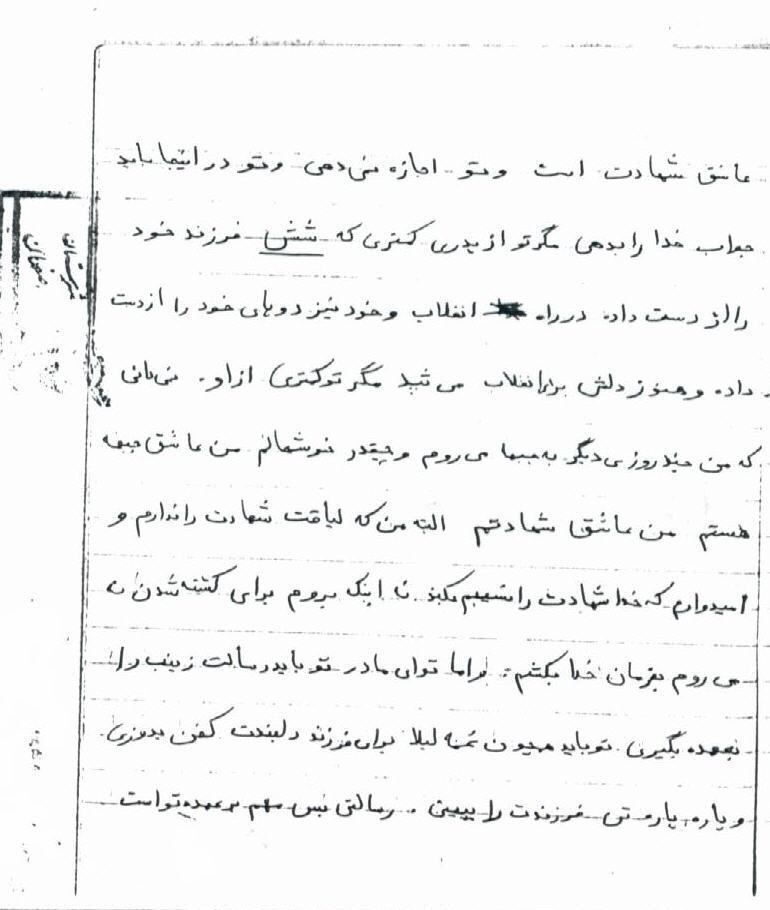 عاشق شهادت است و تو اجازه نمی‌دهی و تو در اینجا باید
جواب خدا را بدهی مگر تو از پدری کمتری که شش فرزند خود
را از دست داده در راه انقلاب و خود نیز دو پای خود را از دست
داده و هنوز دلش برای انقلاب می تپد مگر تو کمتری از او. نمی‌دانی
که من چند روزی دیگر به جبهه می روم و چقدر خوشحالم من عاشق جبهه
هستم من عاشق شهادتم البته من که لیاقت شهادت را ندارم و
امیدوارم که خدا شهادت را نصیبم بکند. نه اینکه بروم برای کشته شدن
می روم بفرمان خدا بکشم. اما تو ای مادر تو باید رسالت زینب را
بعهده بگیری. تو باید همچون ننه لیلا برای فرزند دلبندت کفن بدوزی.
و پاره پاره تن فرزندت را ببینی. رسالتی بس مهم بر عهده تو است
شهرستان